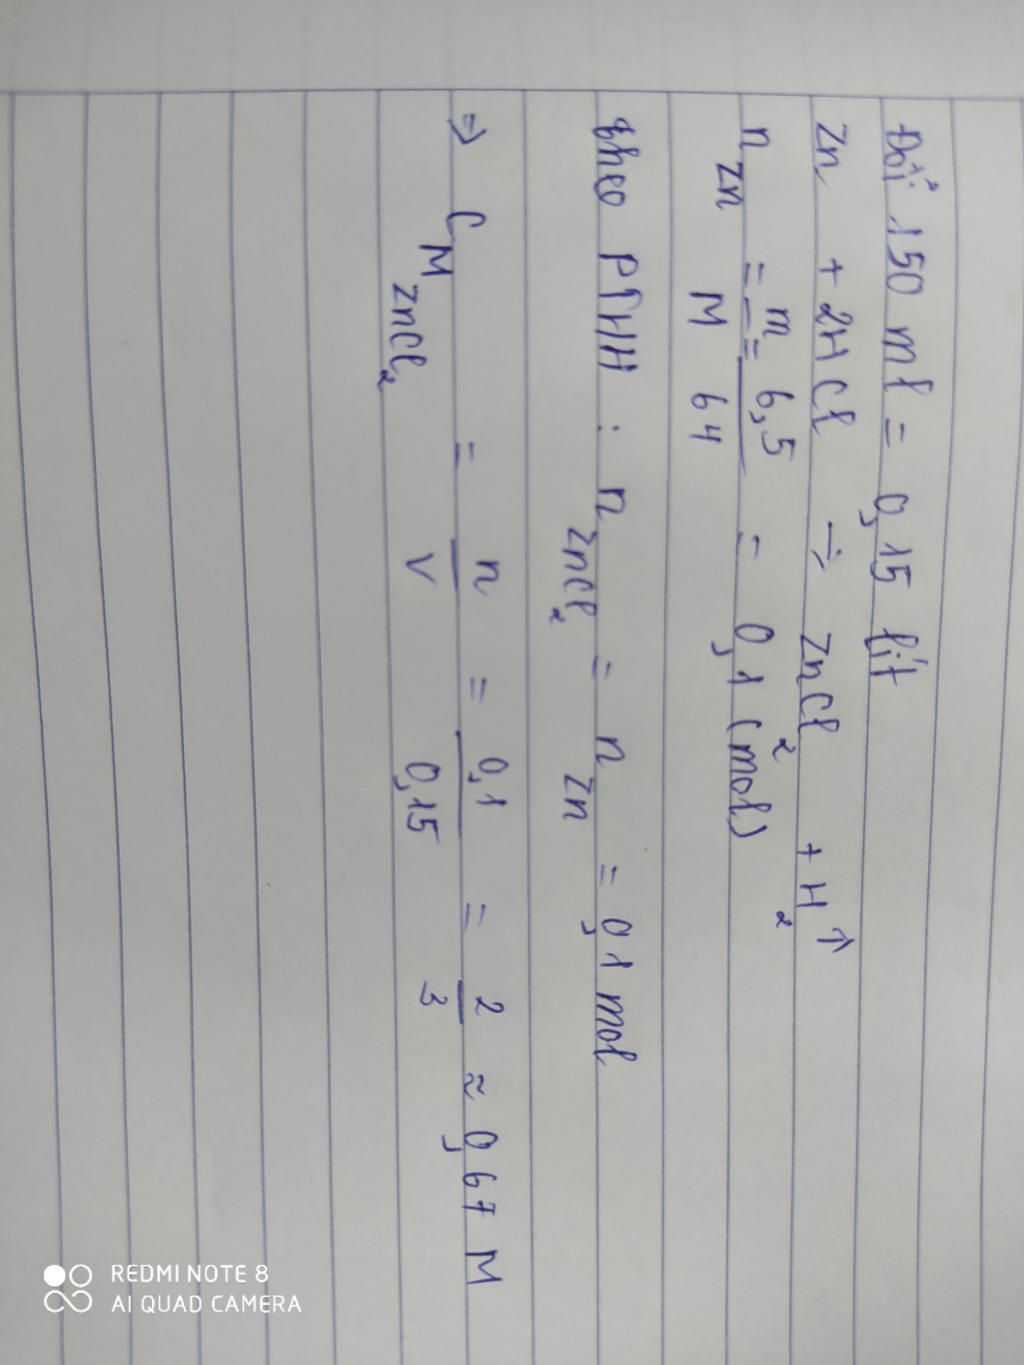 Đổi 150 ml = 0,15 lít
Zn + 2HCl → ZnCl₂ + H₂↑
n Zn = m/M = 6,5/64 = 0,1 (mol)
theo PTHH : n ZnCl₂ = n Zn = 0,1 mol
⇒ C M ZnCl₂ = n/V = 0,1/0,15 = 2/3 ≈ 0,67 M
REDMI NOTE 8
AI QUAD CAMERA